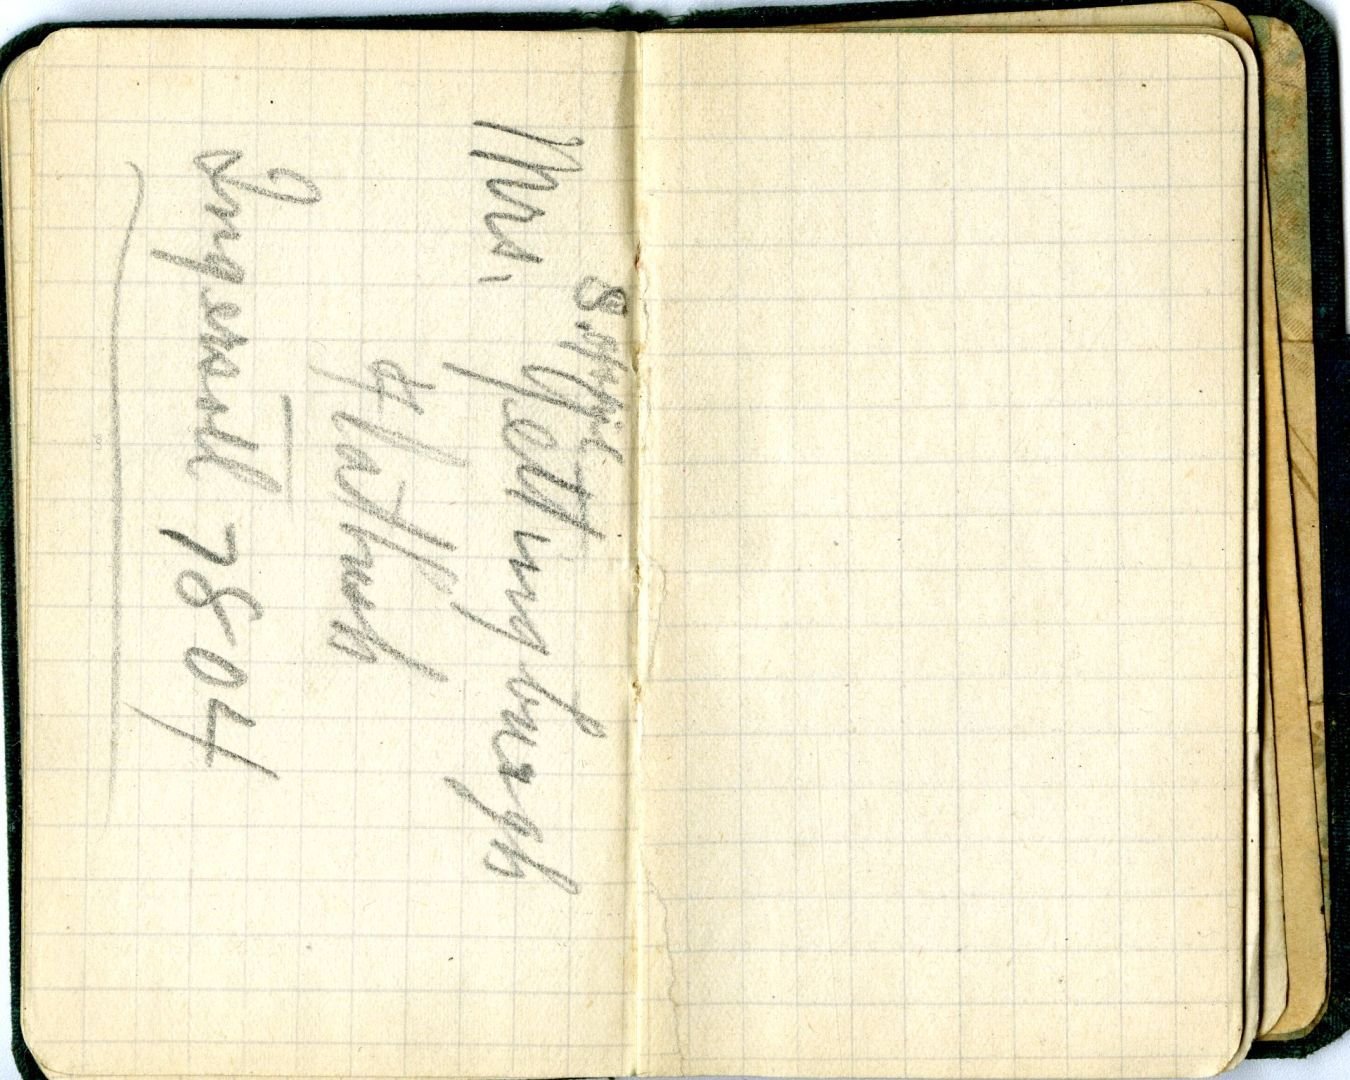 Mrs. Gettingburgh
Flatbush
Ingersoll 7804